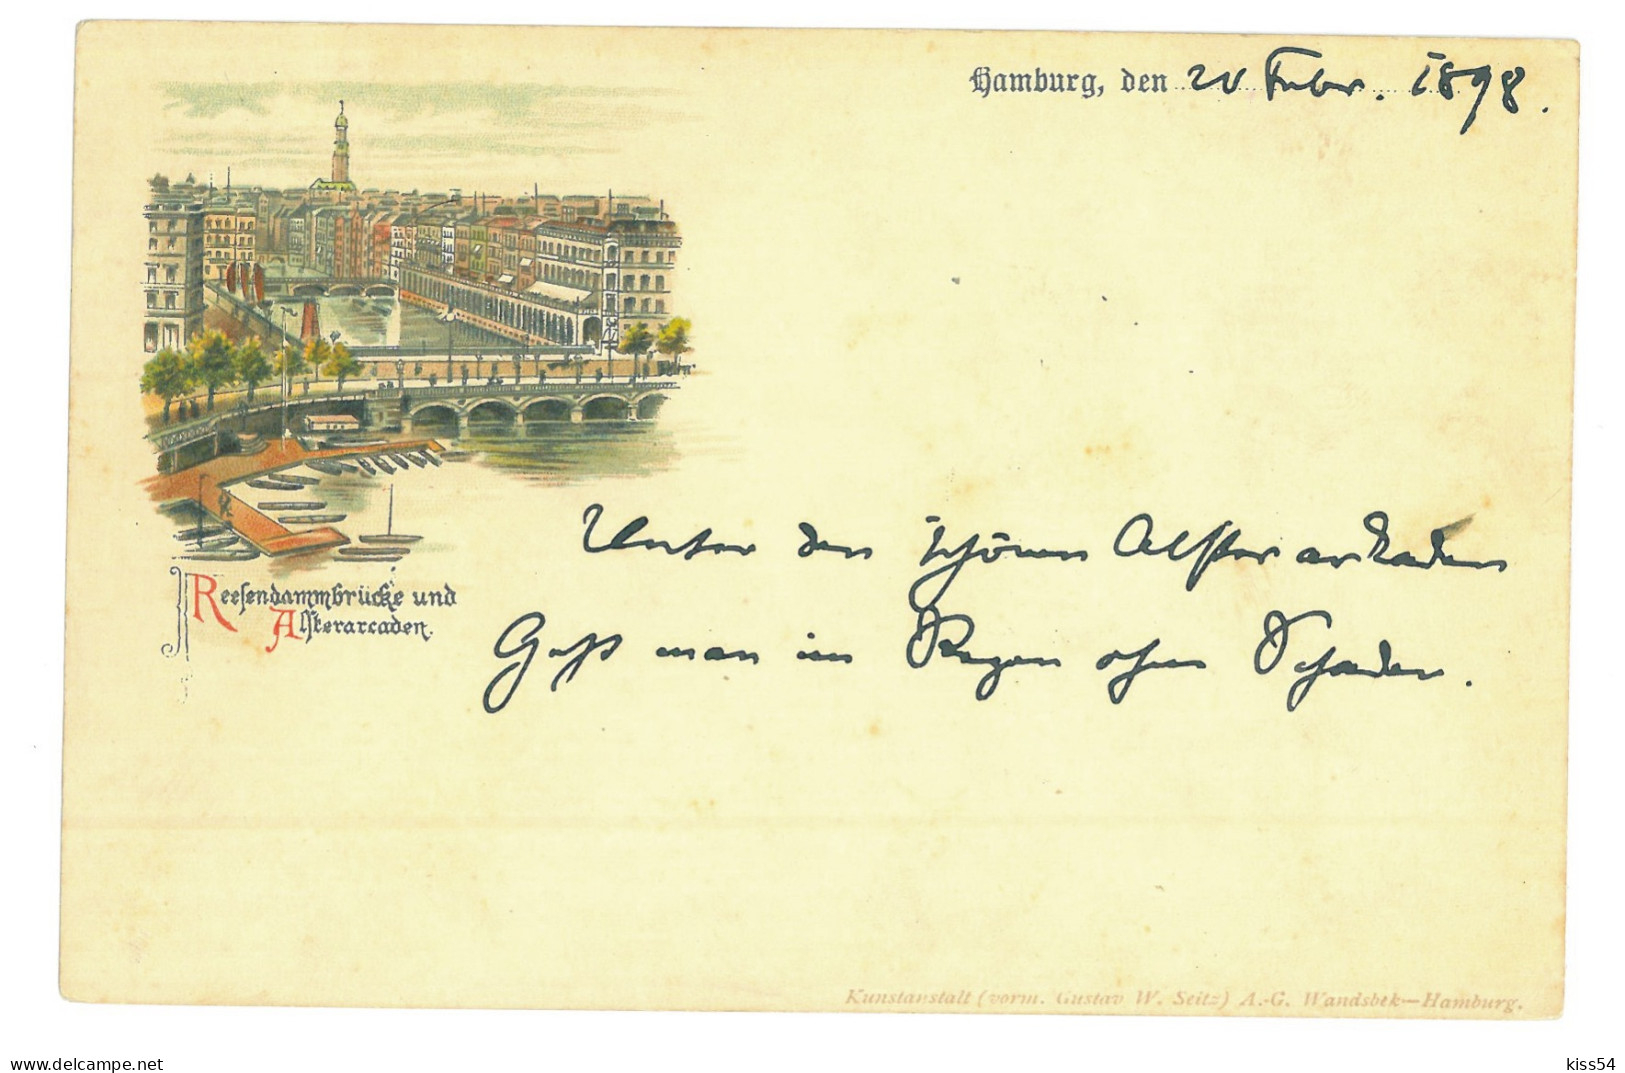 Hamburg, den 20 Febr. 1898.
Reesendammbrücke und
Alsterarcaden.
Unter den schönen Alsterarkaden
Geht man im Regen ohne Schaden.
Kunstanstalt (vorm. Gustav W. Seitz) A.-G. Wandsbek—Hamburg.
delcampe.net
kiss54